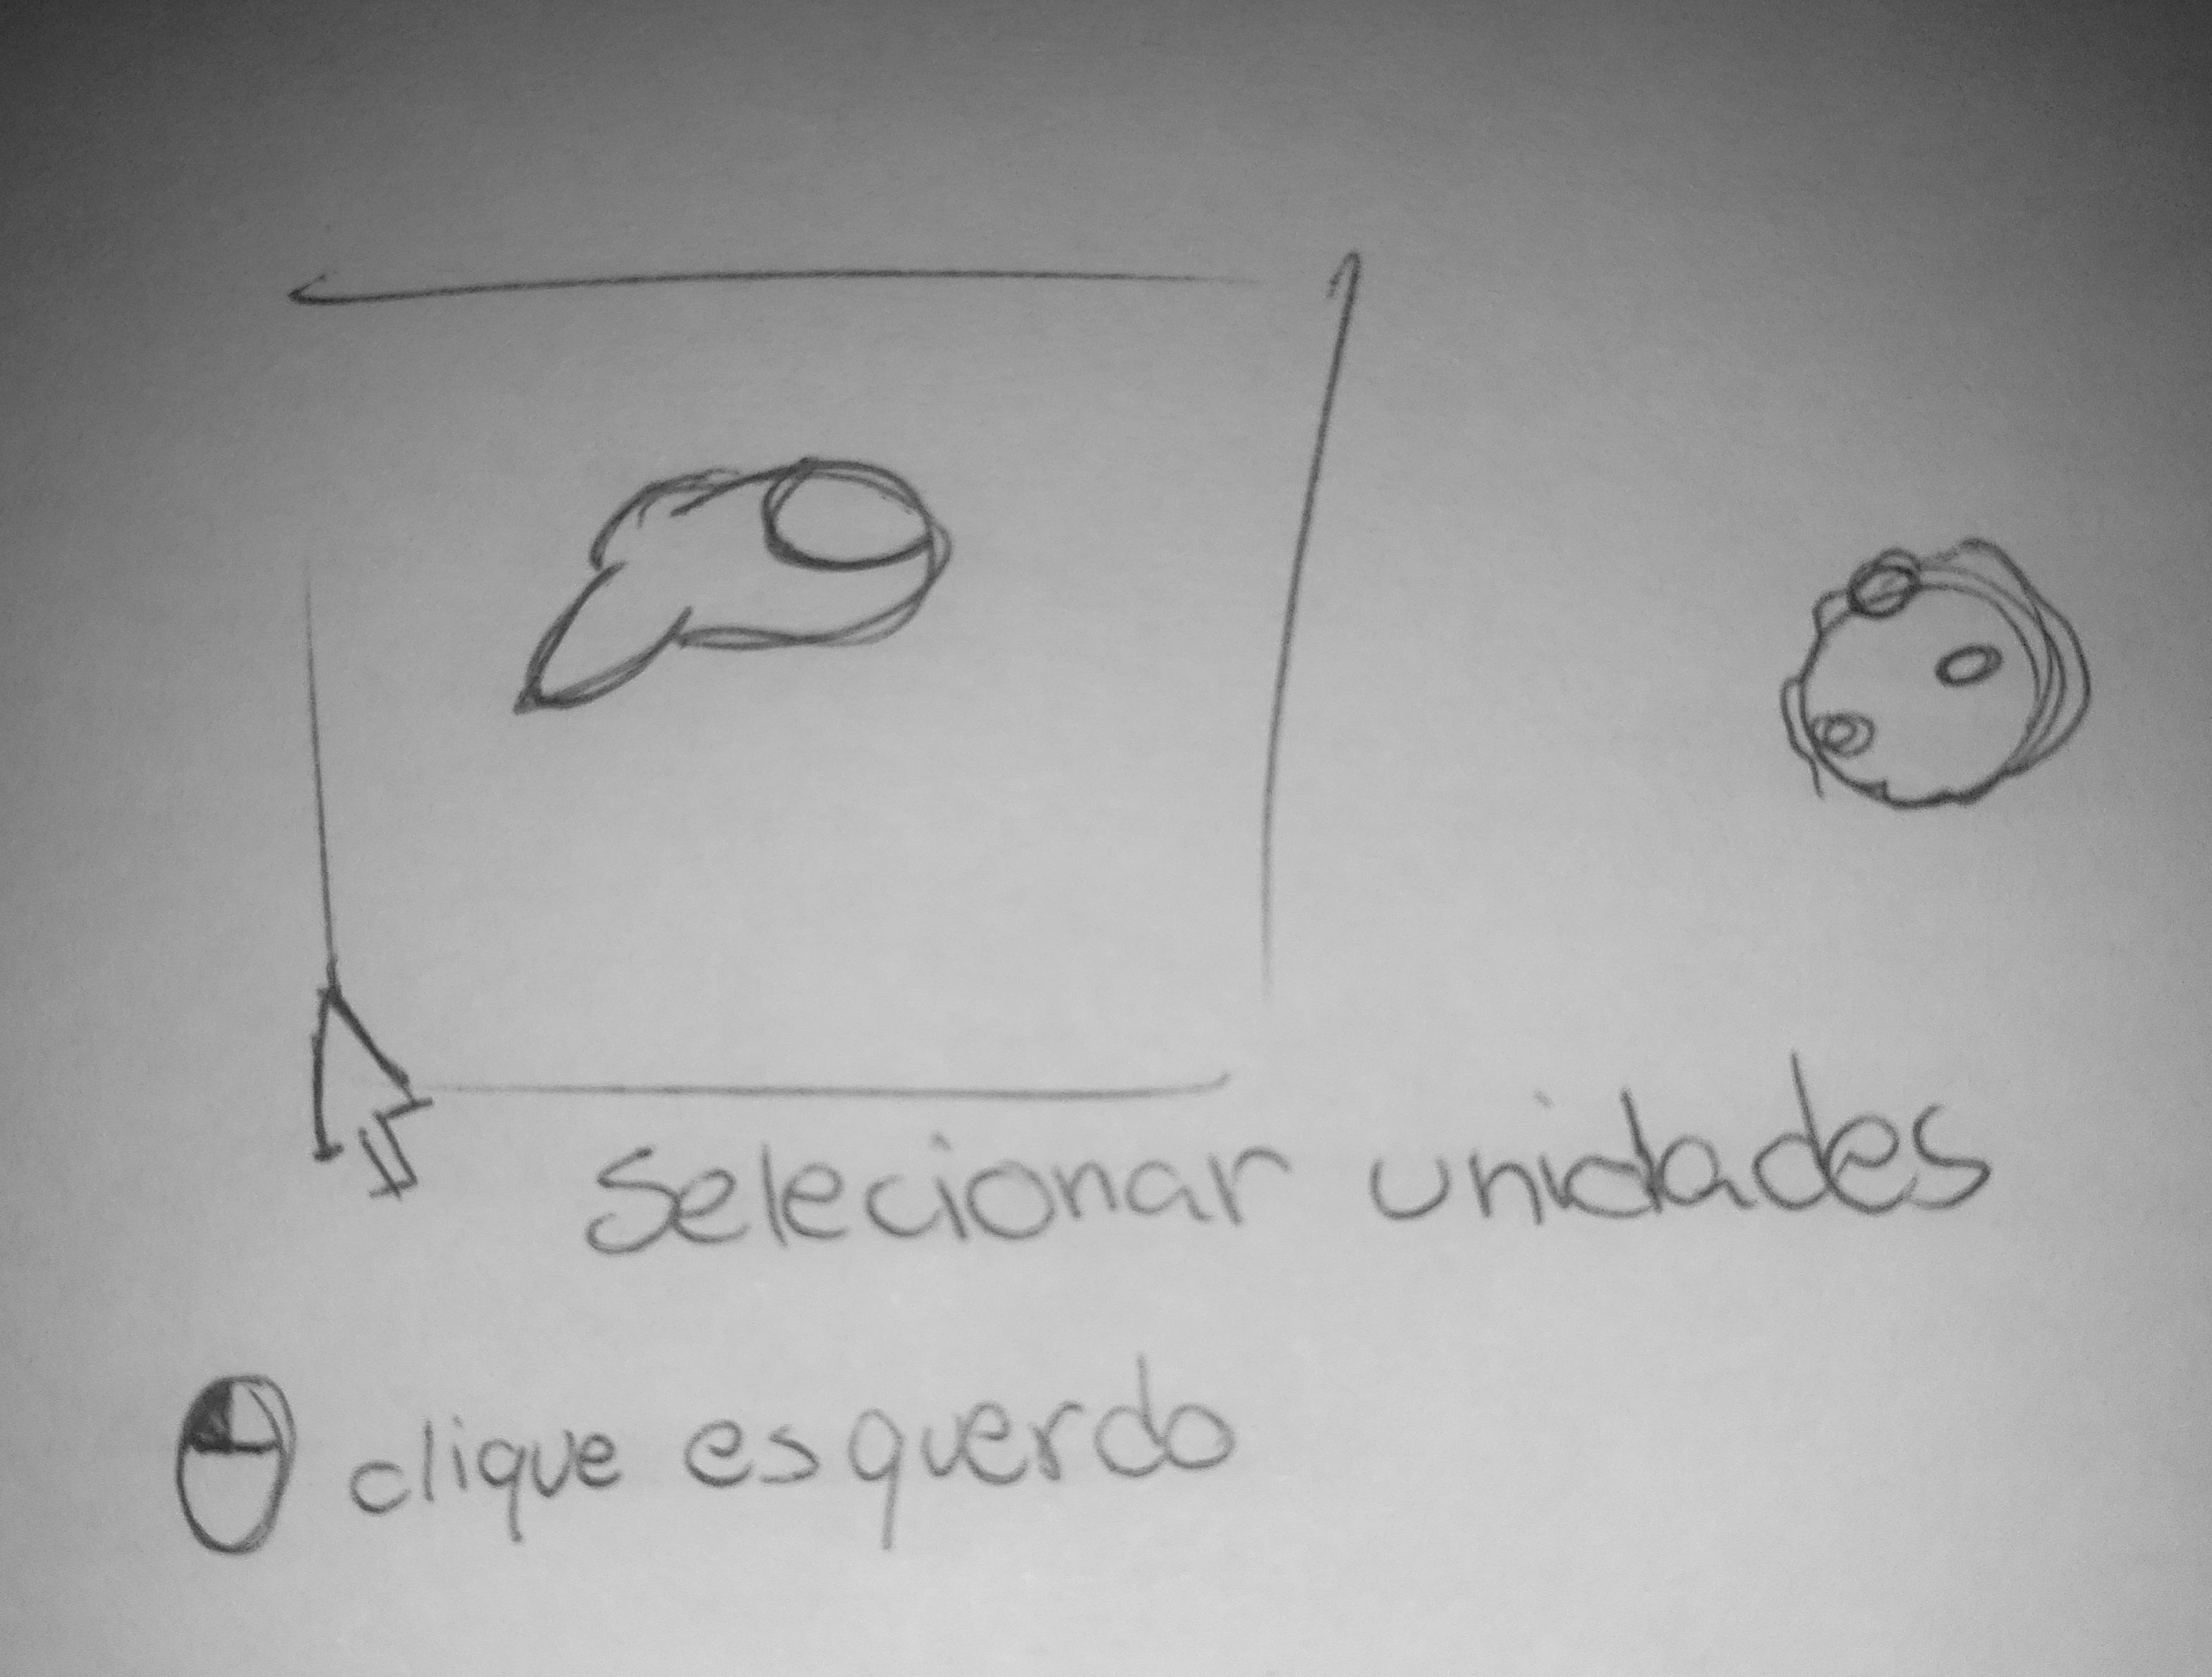 Selecionar unidades
clique esquerdo